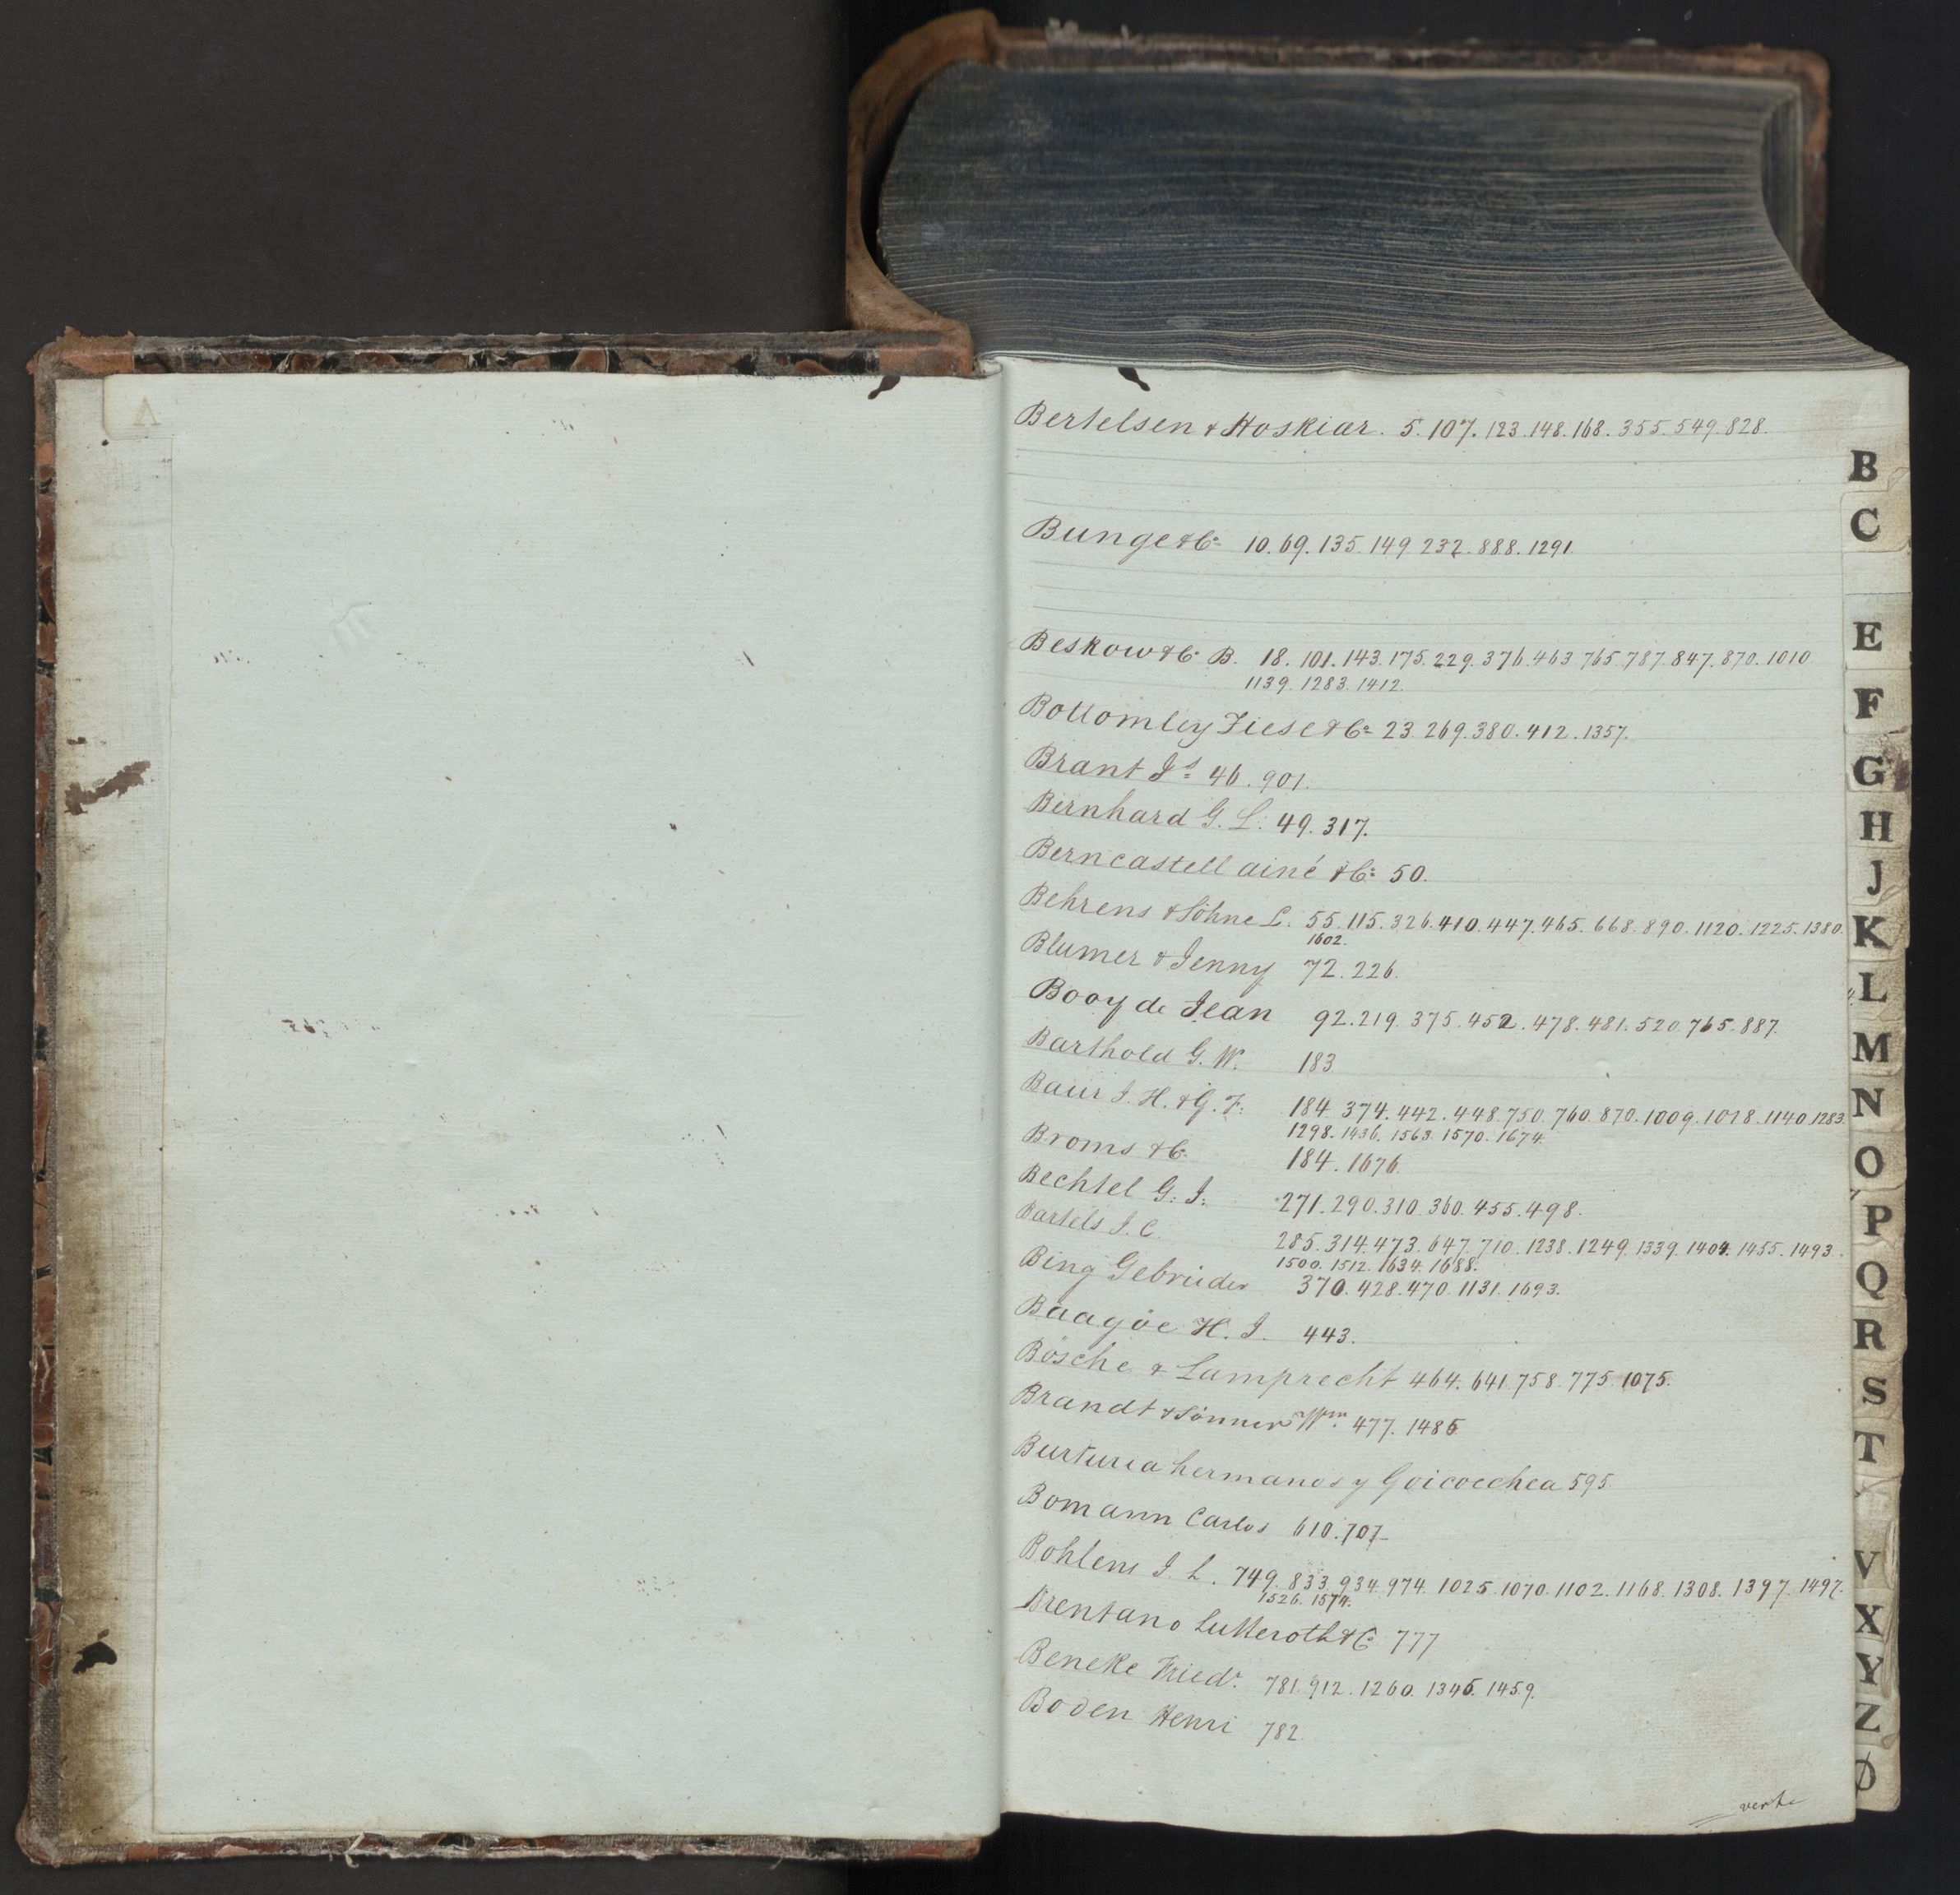 A
Bertelsen & Hoskiær. 5. 107. 123. 148. 168. 355. 549. 828.
Bunge & Co 10. 69. 135. 149. 232. 888. 1291.
Beskow & Co B. 18. 101. 143. 175. 229. 376. 463. 765. 787. 847. 870. 1010
1139. 1283. 1412.
Bottomley Fiese & Co 23. 269. 380. 412. 1357.
Brant Js 46. 901.
Bernhard G. L. 49. 317.
Berncastell ainé & Co 50.
Behrens & Söhne L. 55. 115. 326. 410. 447. 465. 668. 890. 1120. 1225. 1380.
1602.
Blumer & Jenny 72. 226.
Booy de Jean 92. 219. 375. 452. 478. 481. 520. 765. 887.
Barthold G. W. 183
Baur J. H. & G. F. 184. 374. 442. 448. 750. 760. 870. 1009. 1018. 1140. 1283.
1298. 1436. 1563. 1570. 1674.
Broms & Co 184. 1676.
Bechtel G. J. 271. 290. 310. 360. 455. 498.
Bartels J. C. 285. 314. 473. 647. 710. 1238. 1249. 1339. 1404. 1455. 1493.
1500. 1512. 1634. 1688.
Bing Gebrüder 370. 428. 470. 1131. 1693.
Baagöe H. J. 443.
Bösche & Lamprecht 464. 641. 758. 775. 1075.
Brandt & Sönner Wm. 477. 1486
Burturia hermanos y Goicoechea 595.
Bomann Carlos 610. 707
Bohlens J. L. 749. 833. 934. 974. 1025. 1070. 1102. 1168. 1308. 1397. 1497.
1526. 1574.
Brentano Lutteroth & Co 777
Beneke Friedr. 781. 912. 1260. 1346. 1459.
Boden Henri 782
verte
B
C
E
F
G
H
J
K
L
M
N
O
P
Q
R
S
T
V
X
Y
Z
Ø